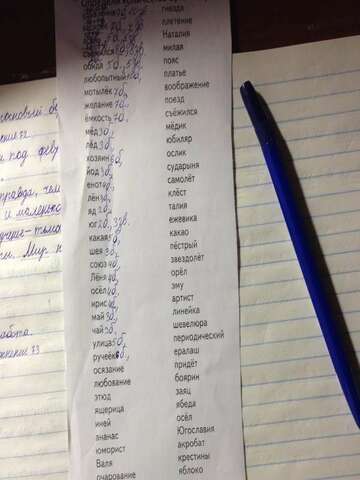 гнезда
плетение
Наталия
милая
обида 5б, 5зв. пояс
любопытный платье
мотылёк 7б, воображение
желание 7б, поезд
ёмкость 7б, съёжился
мёд 3б, мёдик
лёд 3б, юбиляр
хозяин 6б, ослик
йод 3б, сударыня
енот 4б, самолёт
лён 3б, клёст
яд 2б, талия
юг 2б, 3зв. ежевика
какая 5б, какао
шея 3б, пёстрый
союз 4б, звездолёт
Лёня 4б, орёл
осёл 4б, эму
ирис 4б, артист
май 3б, линейка
чай 3б, шевелюра
улица 5б, периодический
ручеёк 6б, ералаш
осязание придёт
любование боярин
этюд заяц
ящерица ябеда
иней осёл
ананас Югославия
юморист акробат
Валя крестины
очарование яблоко
под
правда, чем
и маленько
Мир